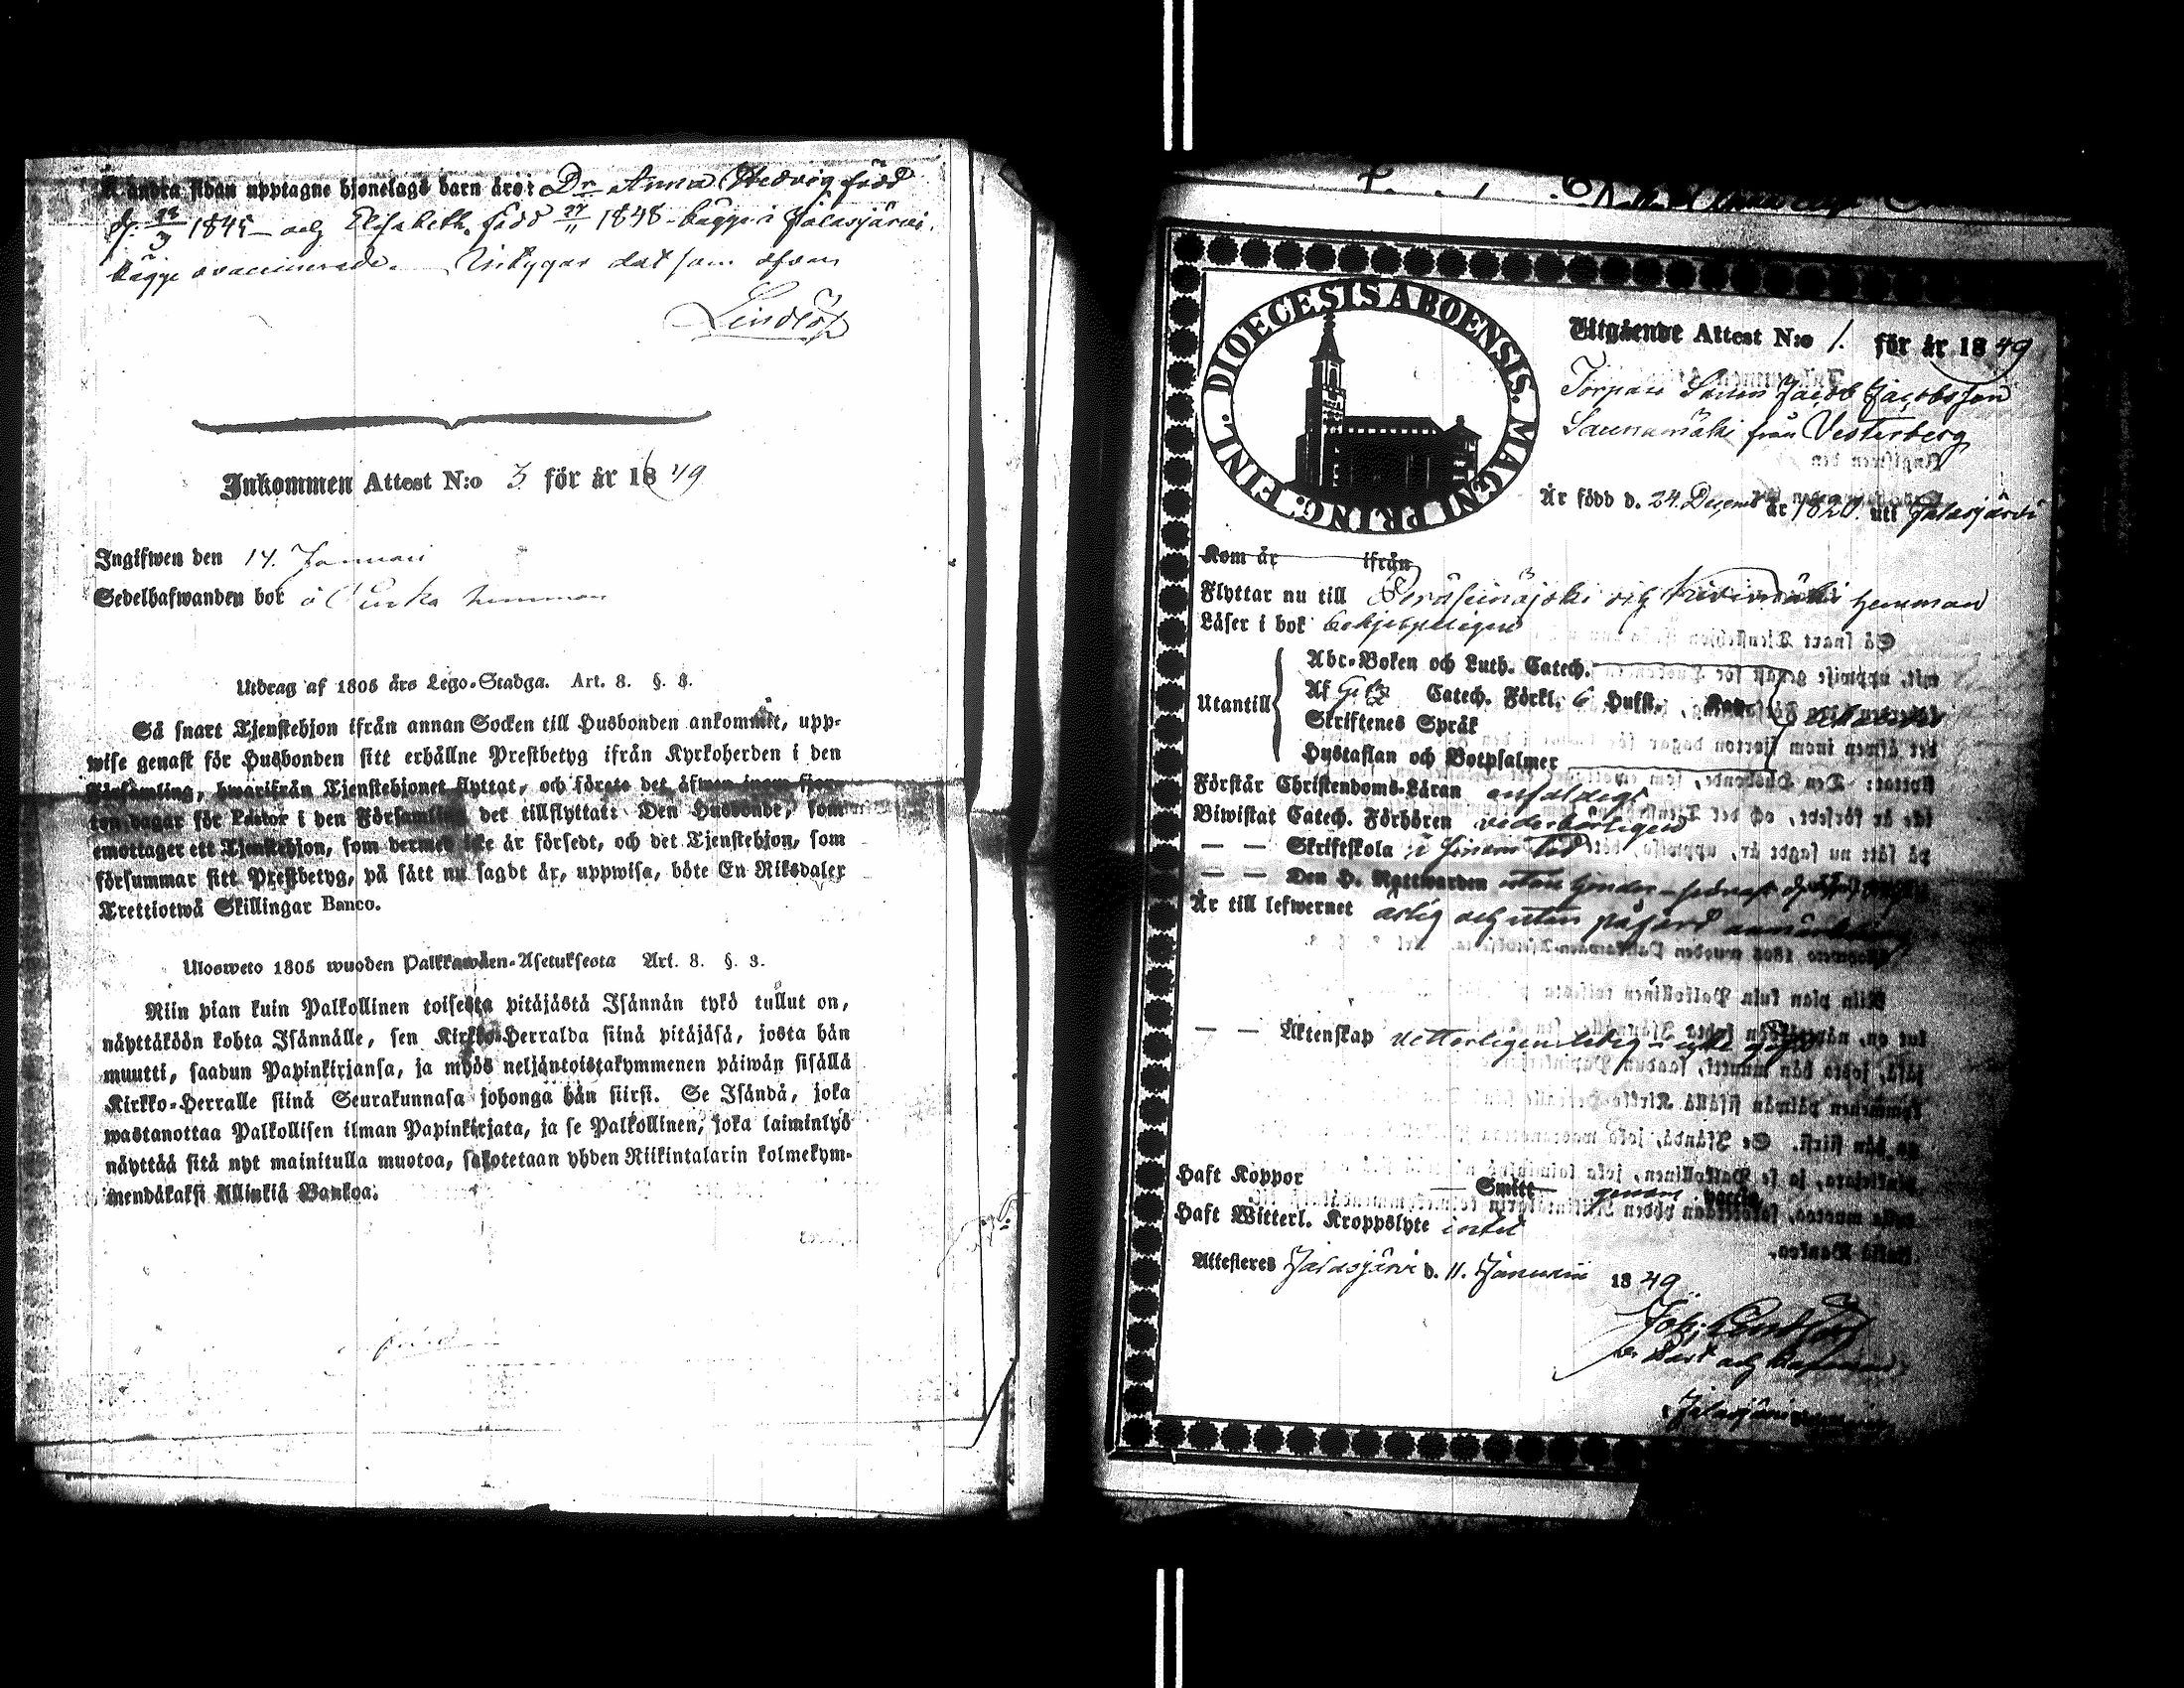 Å andra sidan upptagne hjonelags barn äro: Dr Anna Hedvig född
d. 1845 och Elisabeth född 1848 bägge i Jalasjärvi,
bägge ovaccinerade. Intygar det som ofvan
Lindlöf
Inkommen Attest N:o 3 för år 1849
Ingifwen den 14. Januari
Sedelhafwanden bor å hemman
Utdrag af 1805 års Lego-Stadga. Art. 8. §. 3.
Så snart Tjenstehjon ifrån annan Socken till Husbonden ankommit, upp-
wise genast för Husbonden sitt erhållne Prestbetyg ifrån Kyrkoherden i den
Församling, hwarifrån Tjenstehjonet flyttat, och förete det äfwen inom fjor-
ton dagar för Pastor i den Församling det tillflyttat: Den Husbonde, som
emottager ett Tjenstehjon, som dermed icke är försedt, och det Tjenstehjon, som
försummar sitt Prestbetyg, på sätt nu sagdt är, uppwisa, böte En Riksdaler
Trettiotwå Skillingar Banco.
Ulosweto 1805 wuoden Palkkawäen-Asetuksesta Art. 8. §. 3.
Niin pian kuin Palkollinen toisesta pitäjästä Isännän tykö tullut on,
näyttäköön kohta Isännälle, sen Kirkko-Herralda siinä pitäjäsä, josta hän
muutti, saadun Papinkirjansa, ja myös neljäntoistakymmenen päiwän sisällä
Kirkko-Herralle siinä Seurakunnasa johonga hän siirsi. Se Isändä, joka
wastanottaa Palkollisen ilman Papinkirjata, ja se Palkollinen, joka laiminlyö
näyttää sitä nyt mainitulla muotoa, sakotetaan yhden Riikintalarin kolmekym-
mendäkaksi killinkiä Bankoa.
DIOECESIS ABOENSIS. MAGNI PRINC. FINL.
Utgående Attest N:o 1. för år 1849
Torpare Jacob Jacobsson
Saunamäki från Vesterberg
Är född d. 24. Decemb år 1820. uti Jalasjärvi
Kom år ifrån
Flyttar nu till Peräseinäjoki och hemman
Läser i bok
Utantill
Abc-Boken och Luth. Catech.
Af Catech. Förkl. 6 Hufst.
Skriftenes Språk
Hustaflan och Botpsalmer
Förstår Christendoms-Läran enfaldigt
Biwistat Catech. Förhören vederbörligen
— — Skriftskola i sinom tid
— — Den H. Nattwarden utan hinder
Är till lefwernet ärlig och utan påförd anmärkning
— — Äktenskap
Haft Koppor — Smitt genom
Haft Witterl. Kroppslyte intet
Attesteres Jalasjärvi d. 11. Januarii 1849
Joh. Lindlöf